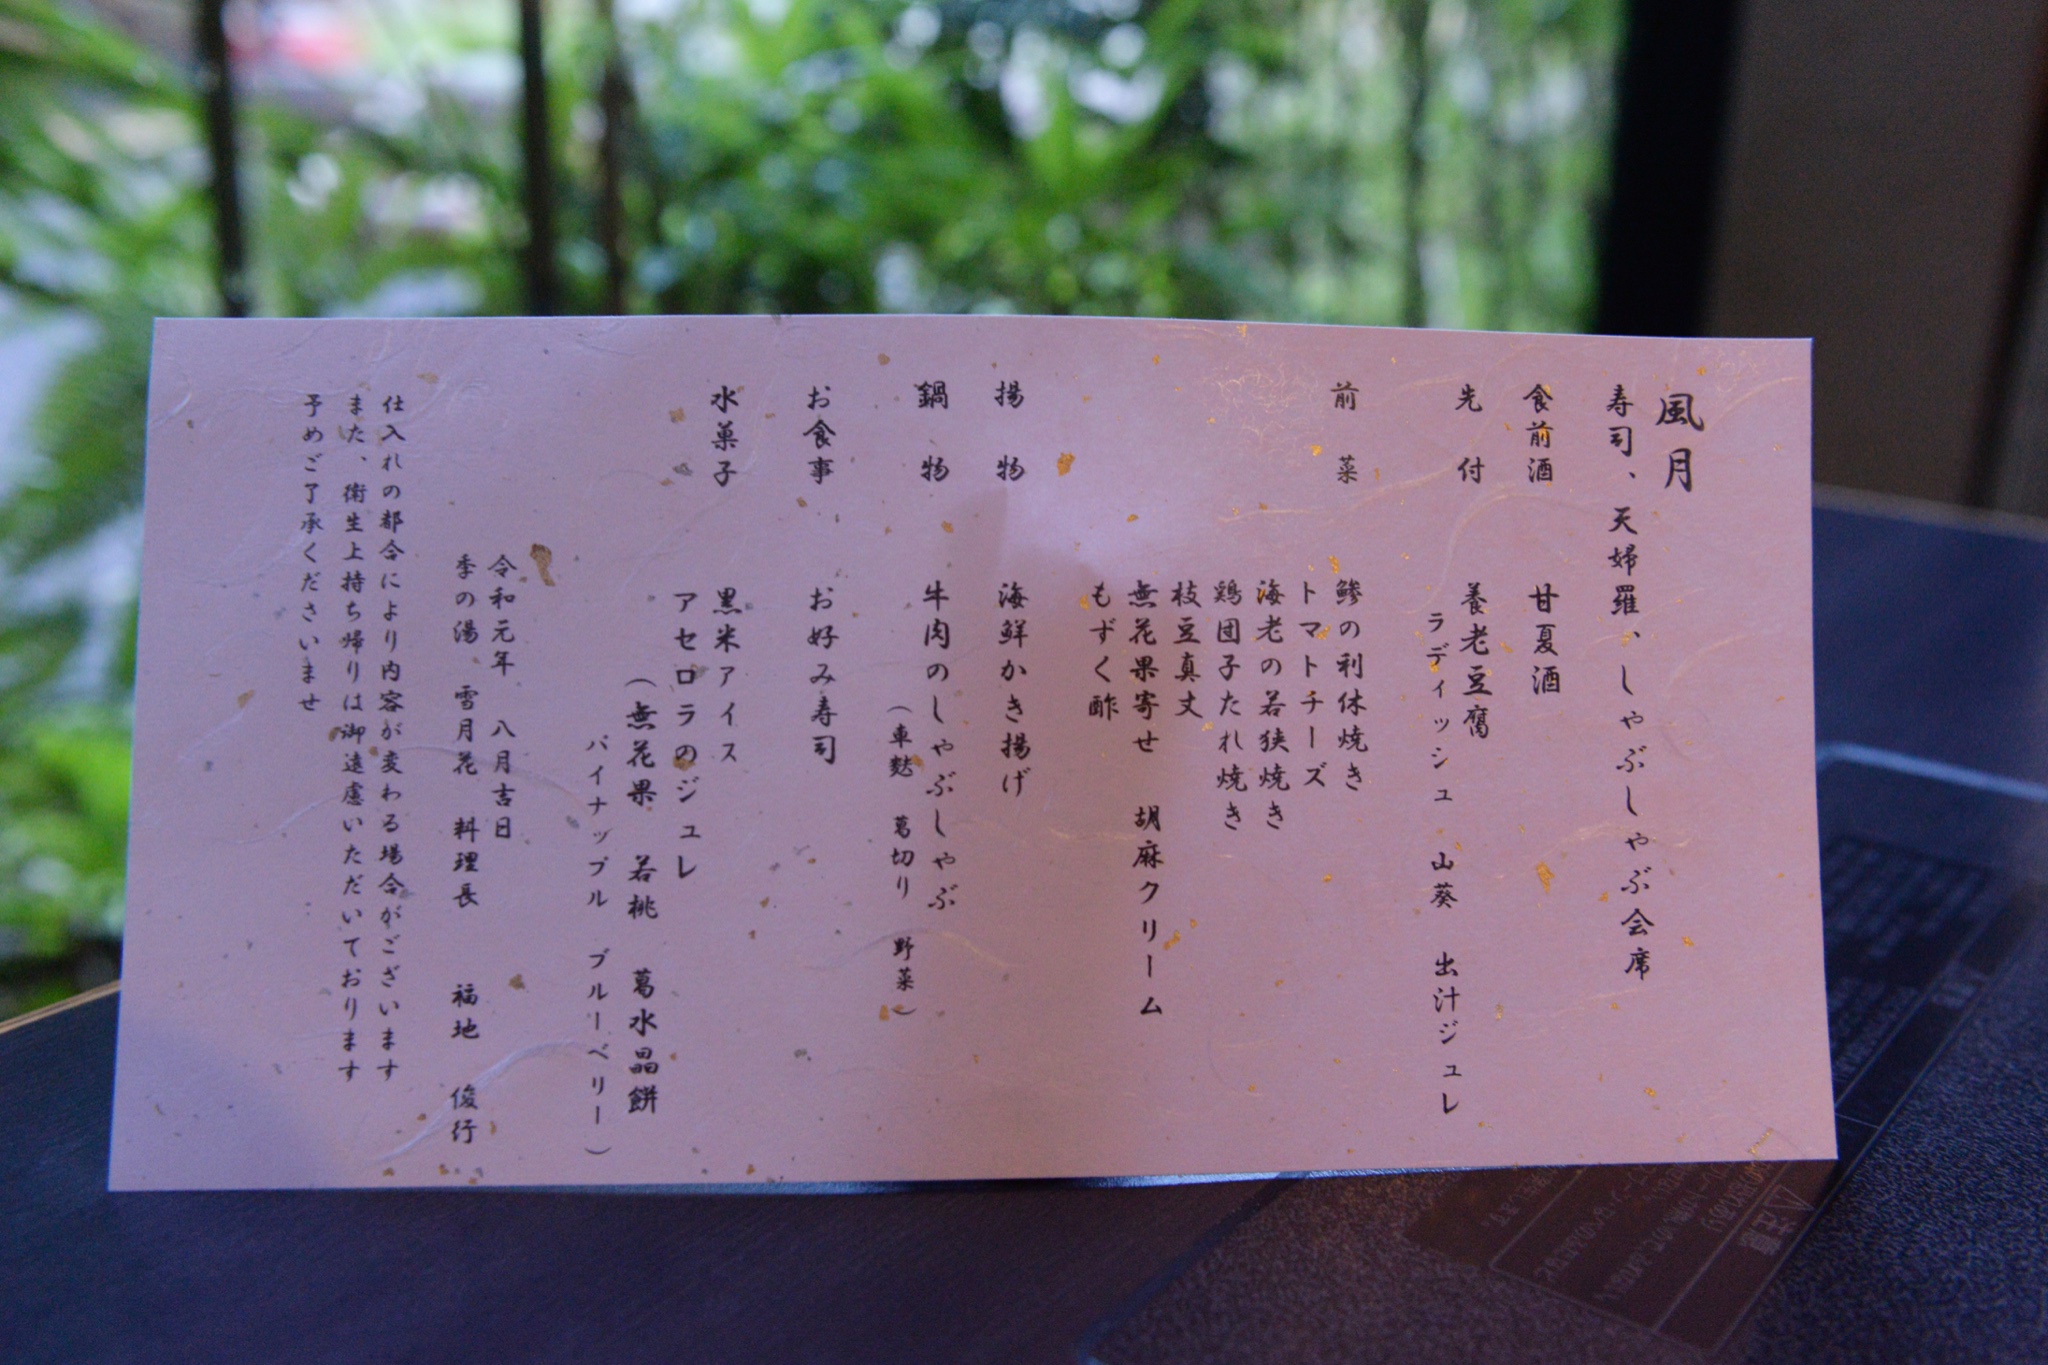 風月
寿司、天婦羅、しゃぶしゃぶ会席
食前酒　甘夏酒
先付　養老豆腐
ラディッシュ　山葵　出汁ジュレ
前菜　鯵の利休焼き
トマトチーズ
海老の若狭焼き
鶏団子たれ焼き
枝豆真丈
無花果寄せ　胡麻クリーム
もずく酢
揚物　海鮮かき揚げ
鍋物　牛肉のしゃぶしゃぶ
（車麩　葛切り　野菜）
お食事　お好み寿司
水菓子　黒米アイス
アセロラのジュレ
（無花果　若桃　葛水晶餅
パイナップル　ブルーベリー）
令和元年　八月吉日
季の湯　雪月花　料理長　福地　俊行
仕入れの都合により内容が変わる場合がございます
また、衛生上持ち帰りは御遠慮いただいております
予めご了承くださいませ
注意